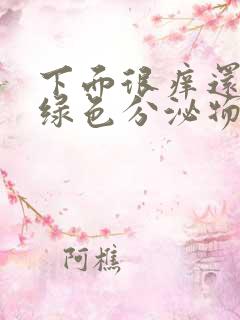 下面很痒還
绿色分泌物
阿樵